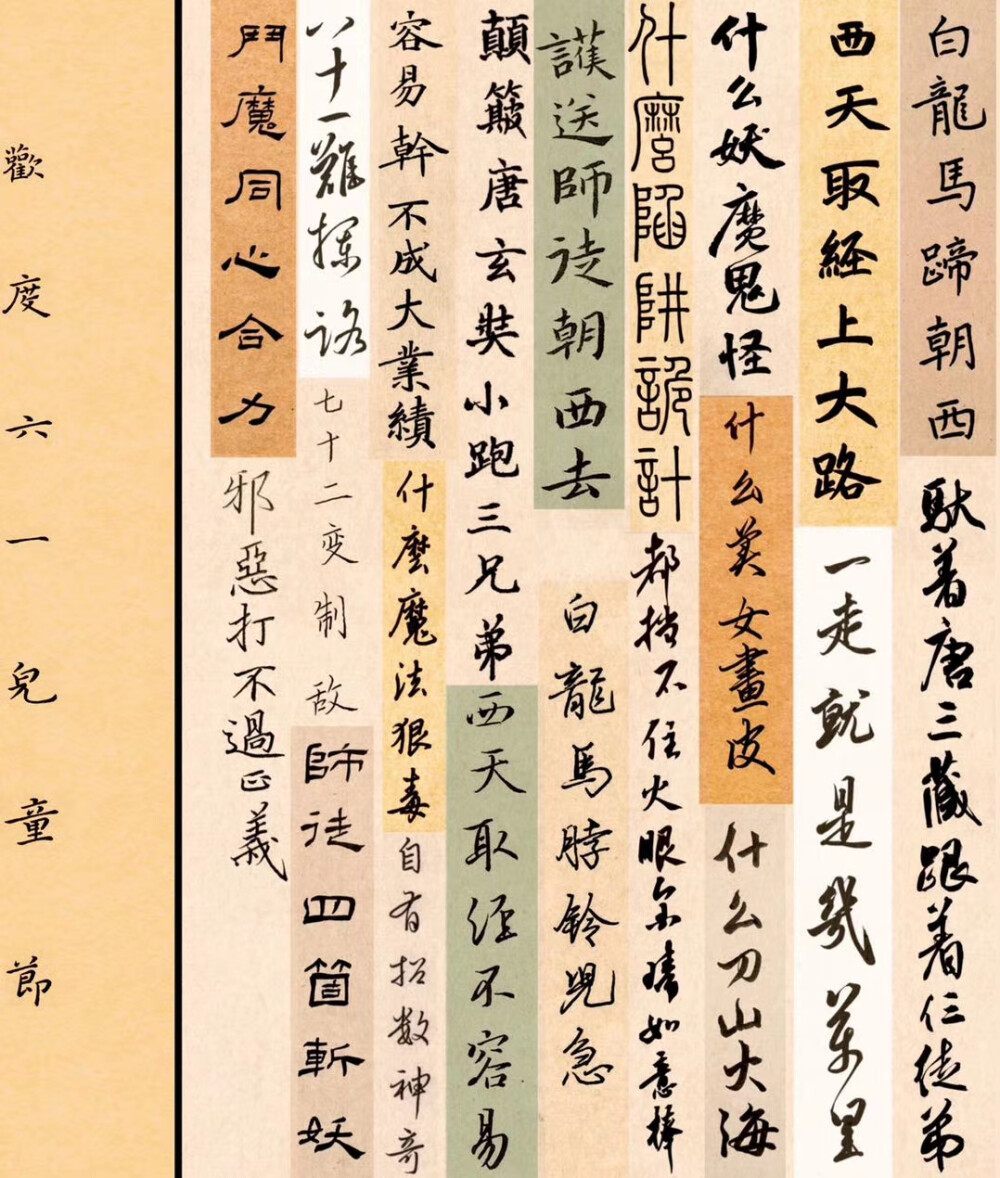 白龍馬蹄朝西馱着唐三藏跟着仨徒弟
西天取経上大路一走就是幾萬里
什么妖魔鬼怪什么美女畫皮什么刀山大海
什麼陷阱詭計都挡不住火眼金睛如意棒
護送師徒朝西去白龍馬脖铃兒急
顛簸唐玄奘小跑三兄弟西天取经不容易
容易幹不成大業績什麼魔法狠毒自有招数神奇
八十一難攔路七十二变制敌師徒四箇斬妖
鬥魔同心合力邪惡打不過正義
歡度六一兒童節